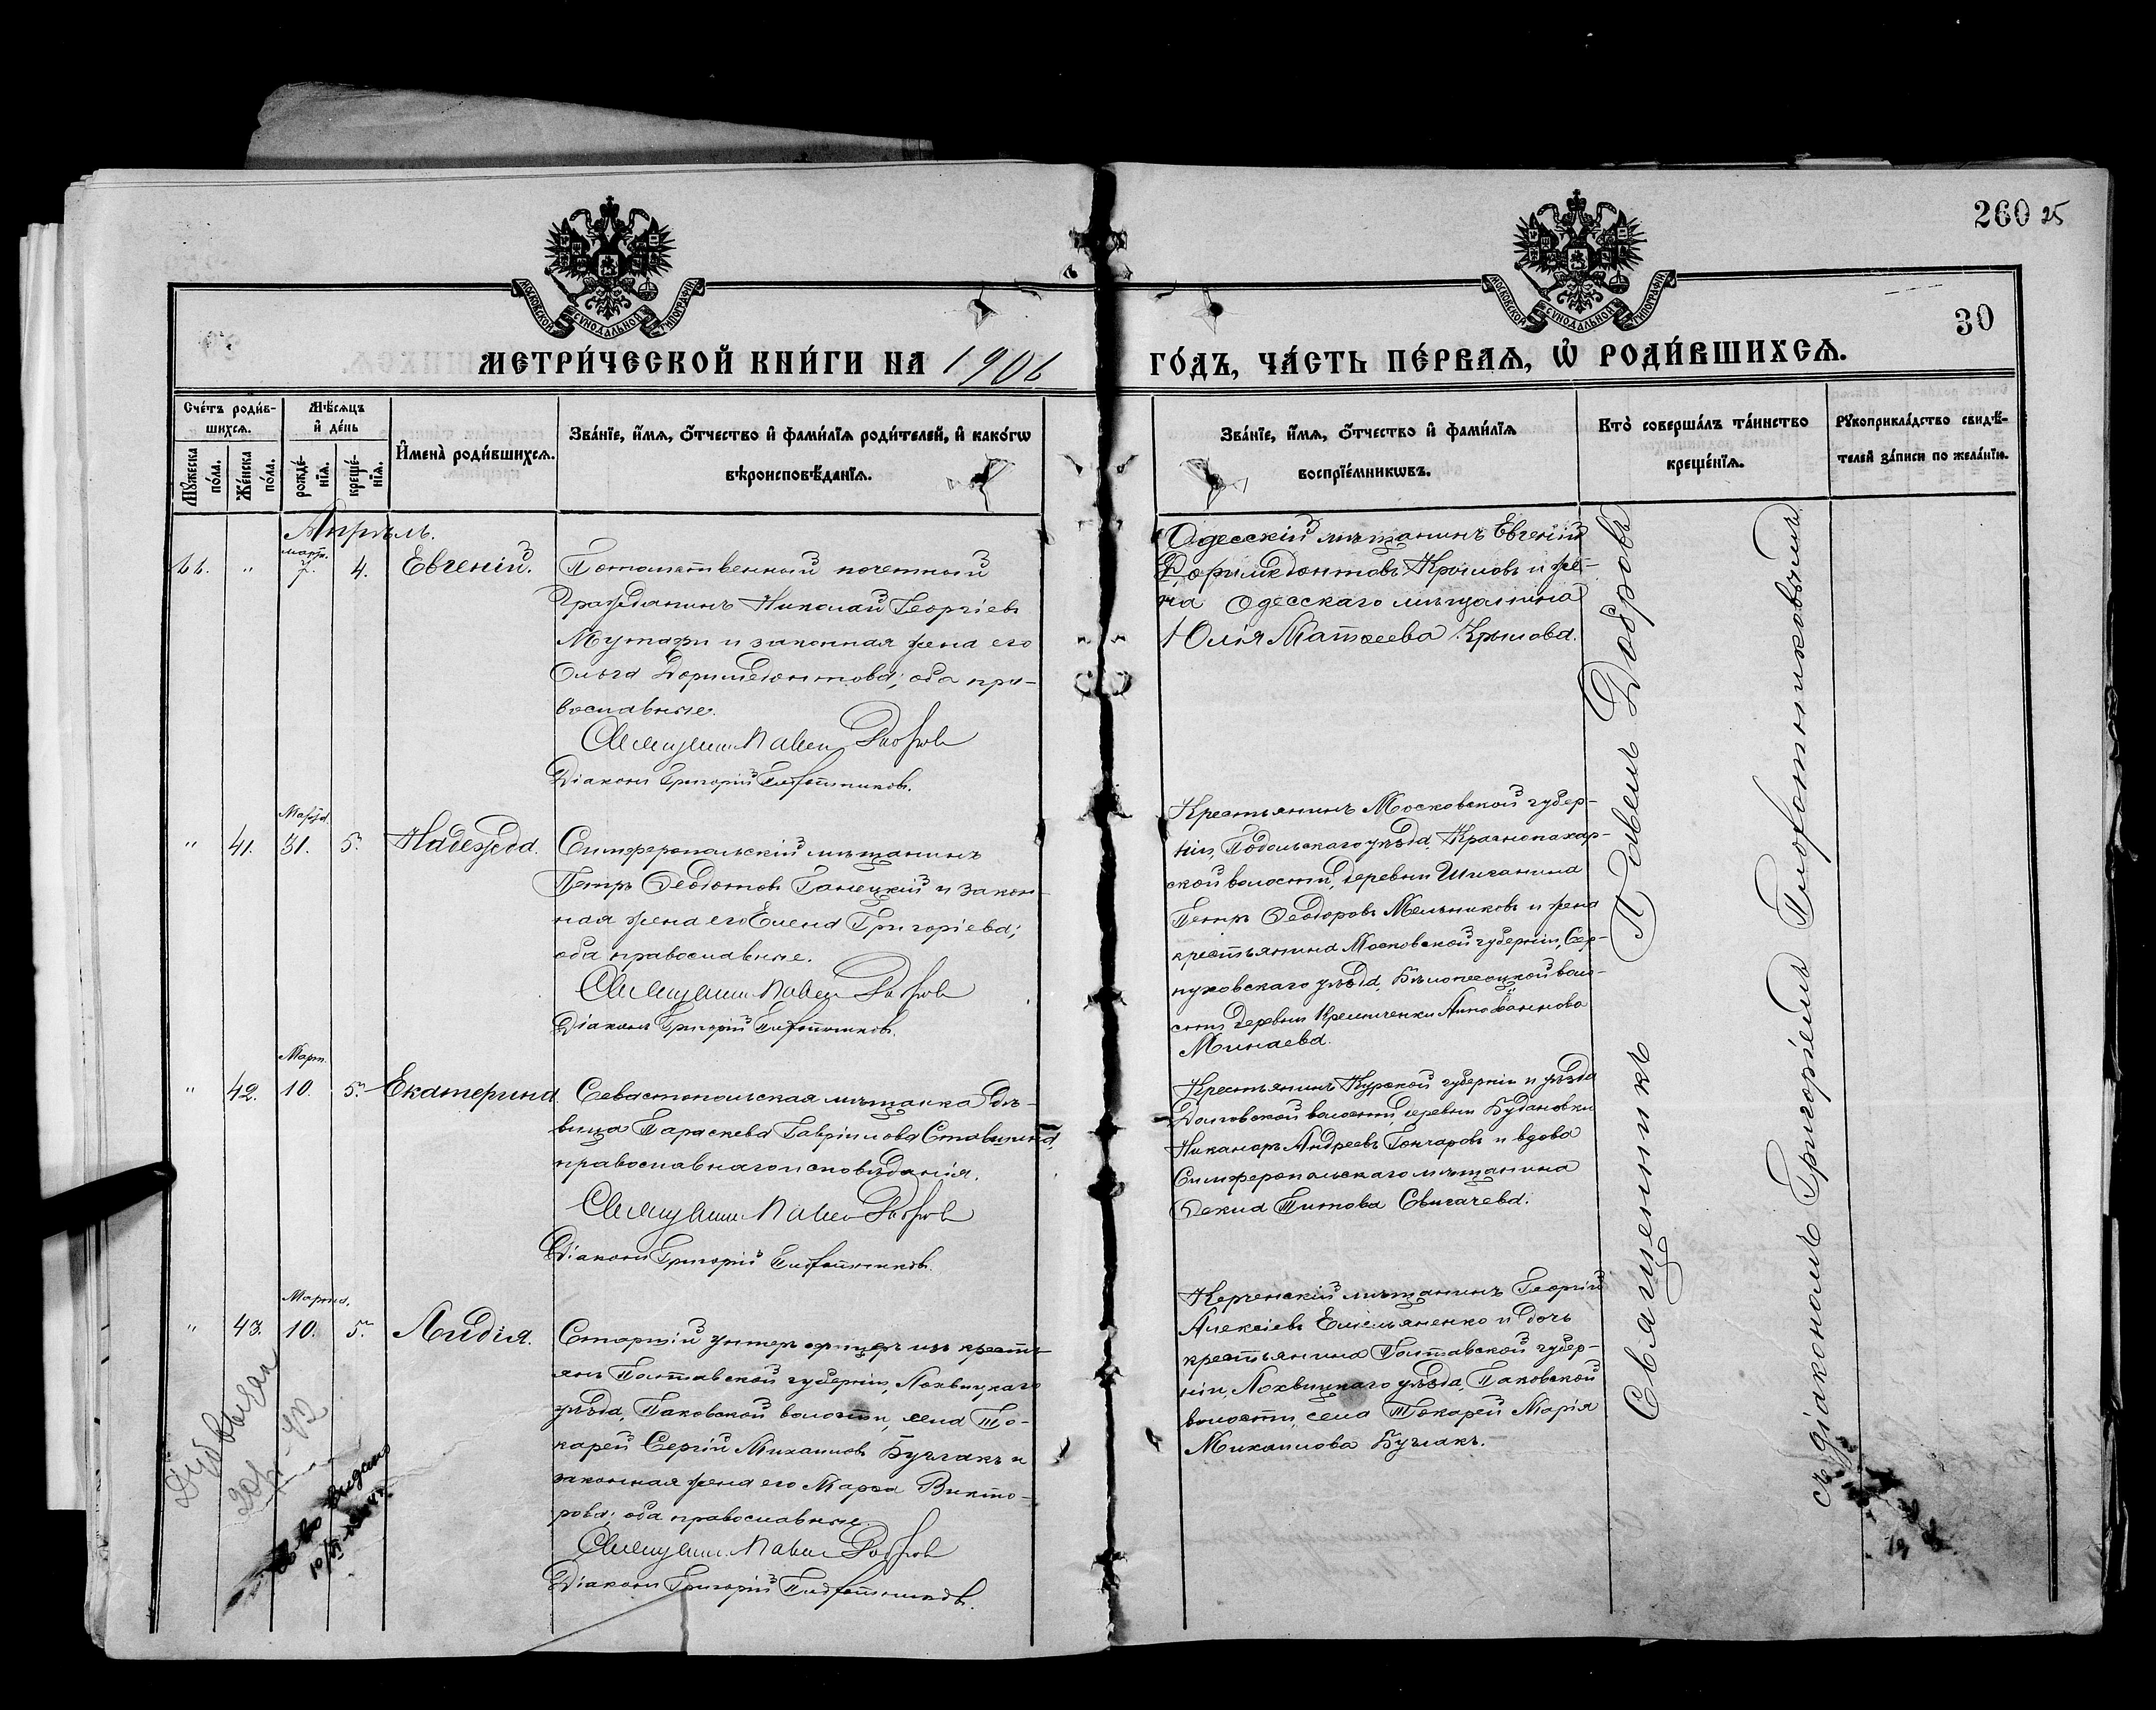 260 25
30
МОСКОВСКОЙ СУНОДАЛЬНОЙ ТИПОГРАФІИ
МОСКОВСКОЙ СУНОДАЛЬНОЙ ТИПОГРАФІИ
МЕТРИ́ЧЕСКОЙ КНИ́ГИ НА 1906 ГО́ДЪ, ЧА́СТЬ ПЕ́РВАѦ, Ѡ҆ РОДИ́ВШИХСѦ.
Сче́тъ роди́в-
шихсѧ.
Мꙋ́жеска по́ла.
Же́нска по́ла.
Мѣ́сѧцъ
и҆ де́нь
рожде́-
нїѧ.
креще́-
нїѧ.
И҆мена̀ роди́вшихсѧ.
Зва́нїе, и҆́мѧ, ѻ҆́тчество и҆ фами́лїѧ роди́телей, и҆ како́гѡ
вѣроисповѣ́данїѧ.
Зва́нїе, и҆́мѧ, ѻ҆́тчество и҆ фами́лїѧ
воспрїе́мникѡвъ.
Кто̀ соверша́лъ та́инство
креще́нїѧ.
Рꙋкоприкла́дство свидѣ́-
телей за́писи по жела́нїю.
Апрѣль.
44. " Март. 7. 4. Евгеній.
Потомственный почетный
Гражданинъ Николай Георгіевъ
и законная жена его
Ольга Доримедонтова; оба пра-
вославные.
Священникъ Павелъ Добровъ
Діаконъ Григорій
Одесскій мѣщанинъ Евгеній
Доримедонтовъ Крыловъ и же-
на Одесскаго мѣщанина
Юлія Матѳеева Крылова.
" 41. Марта. 31. 5. Надежда.
Симферопольскій мѣщанинъ
Петръ Ѳедотовъ Ганецкій и закон-
ная жена его Елена Григоріева;
оба православные.
Священникъ Павелъ Добровъ
Діаконъ Григорій
Крестьянинъ Московской губер-
ніи, Подольскаго уѣзда, Краснопахор-
ской волости, деревни Шиганина
Петръ Ѳедоровъ Мельниковъ и жена
крестьянина Московской губерніи, Сер-
пуховскаго уѣзда, Бѣлопесоцкой воло-
сти, деревни Кременченки Анна Іоаннова
Минаева.
" 42. Март. 10. 5. Екатерина.
Севастопольская мѣщанка дѣ-
вица Параскева Гавріилова
православнаго исповѣданія.
Священникъ Павелъ Добровъ
Діаконъ Григорій
Крестьянинъ Курской губерніи и уѣзда
волости, деревни Будановки
Никаноръ Андреевъ Гончаровъ и вдова
Симферопольскаго мѣщанина
Ѳекла Титова Свигачева.
" 43. Марта. 10. 5. Лидія.
Старшій унтеръ офицеръ изъ кресть-
янъ Полтавской губерніи, Лохвицкаго
уѣзда, Паковской волости, села То-
карей Сергій Михаиловъ Буглакъ и
законная жена его Марѳа Викто-
рова; оба православные.
Священникъ Павелъ Добровъ
Діаконъ Григорій
Керченскій мѣщанинъ Георгій
Алексіевъ Емельяненко и дочь
крестьянина Полтавской губер-
ніи, Лохвицкаго уѣзда, Паковской
волости, села Токарей Марія
Михаилова Буглакъ.
Священникъ Павелъ Добровъ
съ діакономъ Григоріемъ